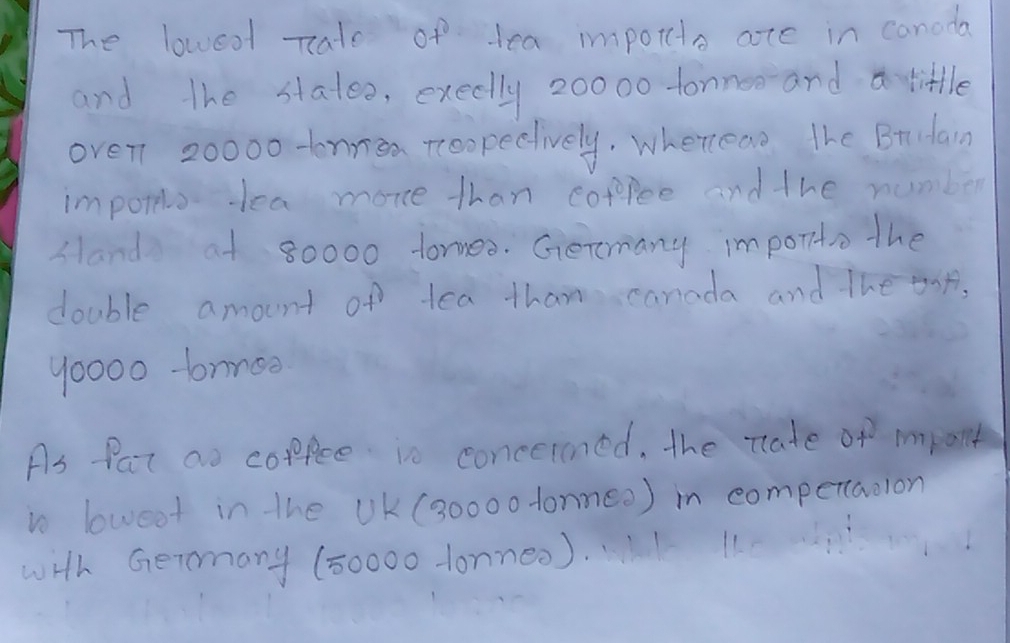 The lowest rate of tea imports are in canada
and the states, exectly 20000 tonnes and a little
over 20000 tonnes respectively. whereas the Britain
imports tea more than coffee and the number
stands at 80000 tonnes. Germany imports the
double amount of tea than canada and the USA,
40000 tonnes
As far as coffee is concerned, the rate of import
is lowest in the UK (30000 tonnes) in comperasion
with Germany (50000 tonnes). while the